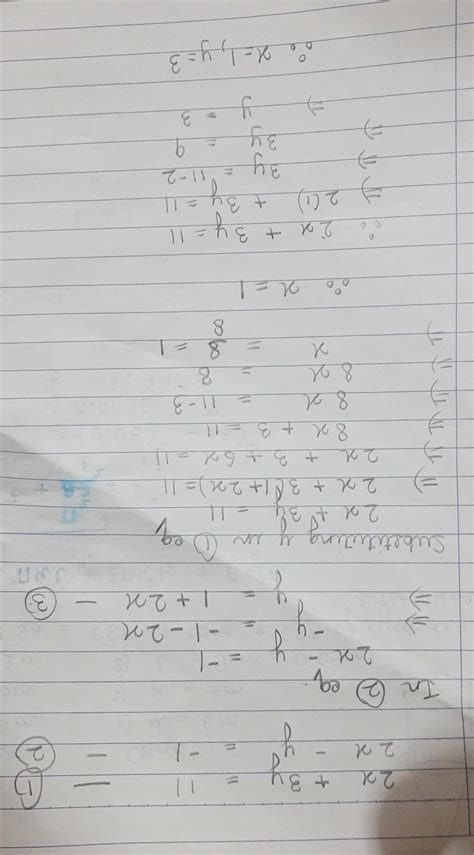 2x + 3y = 11 — ①
2x - y = -1 - ②
In ② eq.
2x - y = -1
⇒ -y = -1 - 2x
⇒ y = 1 + 2x - ③
Substituting y in ① eq
2x + 3y = 11
⇒ 2x + 3(1+2x) = 11
⇒ 2x + 3 + 6x = 11
⇒ 8x + 3 = 11
⇒ 8x = 11-3
⇒ 8x = 8
⇒ x = 8/8 = 1
∴ x = 1
∴ 2x + 3y = 11
⇒ 2(1) + 3y = 11
⇒ 3y = 11-2
⇒ 3y = 9
⇒ y = 3
∴ x=1, y=3